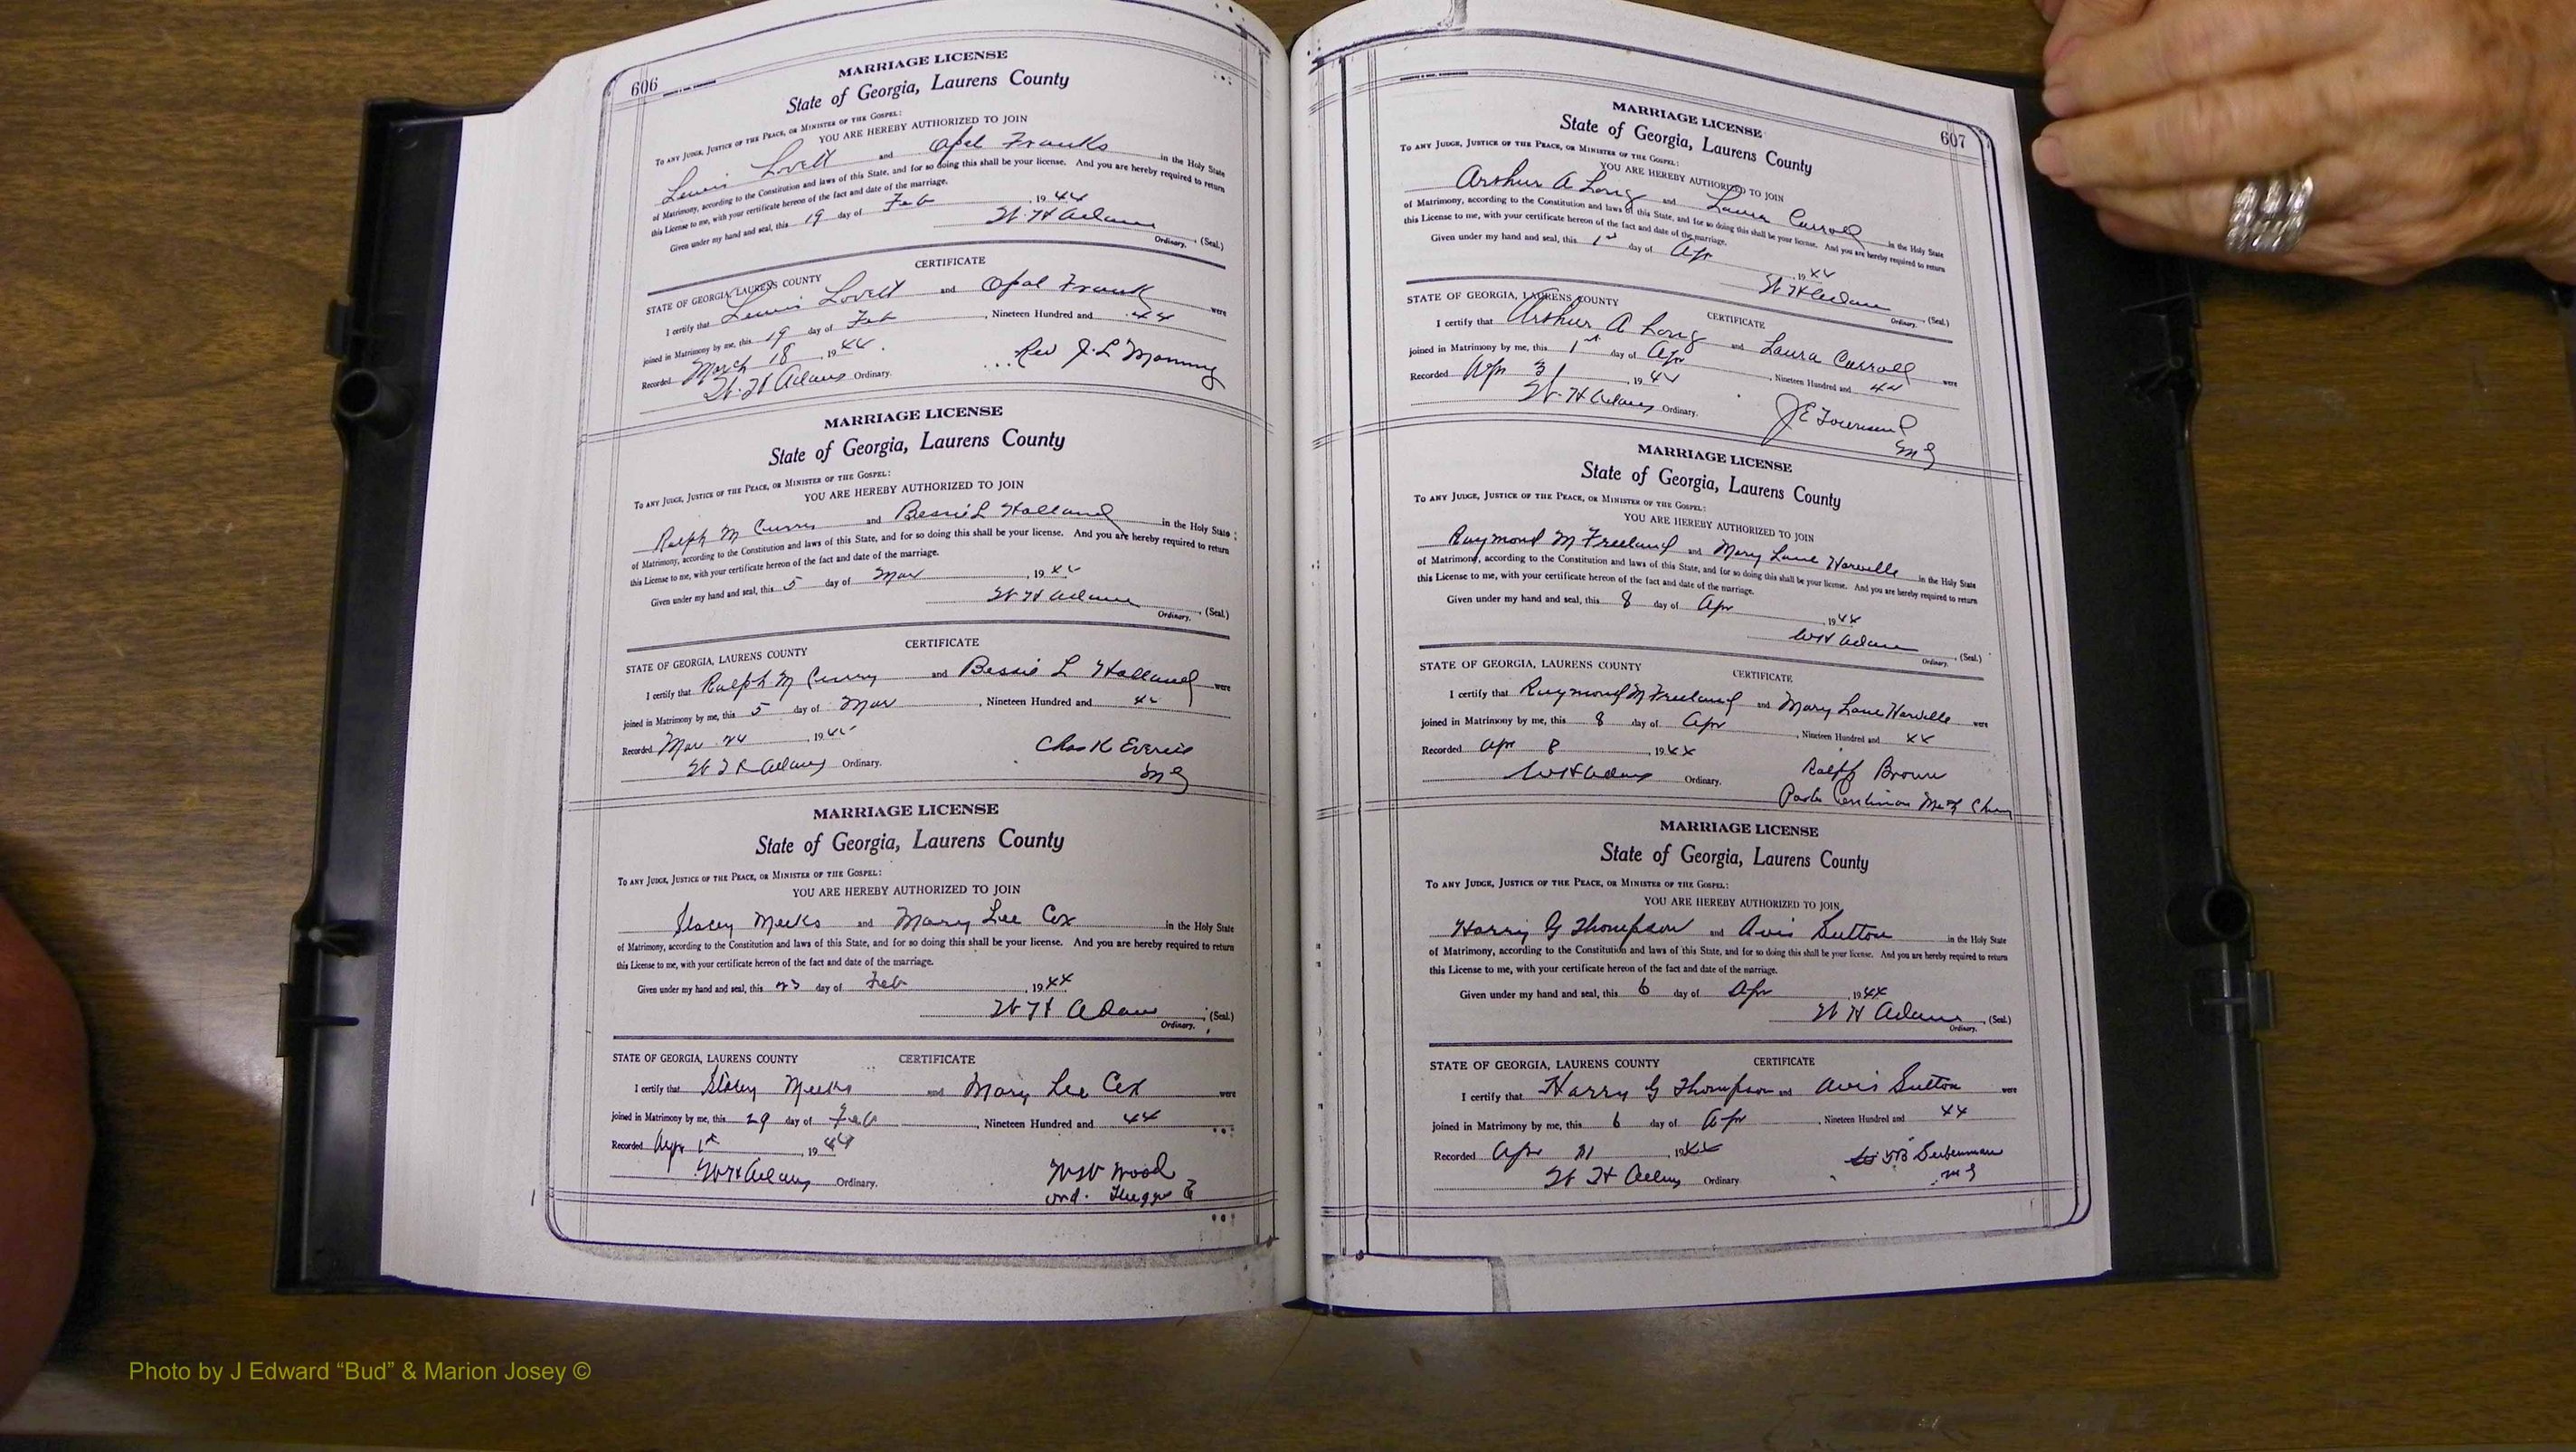 606
MARRIAGE LICENSE
State of Georgia, Laurens County
To any Judge, Justice of the Peace, or Minister of the Gospel:
YOU ARE HEREBY AUTHORIZED TO JOIN
Lewis Lovett and Opel Franks in the Holy State
of Matrimony, according to the Constitution and laws of this State, and for so doing this shall be your license. And you are hereby required to return
this License to me, with your certificate hereon of the fact and date of the marriage.
Given under my hand and seal, this 19 day of Feb, 1944
W. H Adams (Seal.)
Ordinary.
CERTIFICATE
STATE OF GEORGIA, LAURENS COUNTY
I certify that Lewis Lovett and Opal Frank were
joined in Matrimony by me, this 19 day of Feb, Nineteen Hundred and 44
Recorded March 18, 1944
Rev J. L
W. H Adams Ordinary.
MARRIAGE LICENSE
State of Georgia, Laurens County
To any Judge, Justice of the Peace, or Minister of the Gospel:
YOU ARE HEREBY AUTHORIZED TO JOIN
Ralph M Curry and Bessie L Holland in the Holy State
of Matrimony, according to the Constitution and laws of this State, and for so doing this shall be your license. And you are hereby required to return
this License to me, with your certificate hereon of the fact and date of the marriage.
Given under my hand and seal, this 5 day of Mar, 1944
W H Adams (Seal.)
Ordinary.
CERTIFICATE
STATE OF GEORGIA, LAURENS COUNTY
I certify that Ralph M Curry and Bessie L Holland were
joined in Matrimony by me, this 5 day of Mar, Nineteen Hundred and 44
Recorded Mar 24, 1944
Chas K
Adams Ordinary.
M G
MARRIAGE LICENSE
State of Georgia, Laurens County
To any Judge, Justice of the Peace, or Minister of the Gospel:
YOU ARE HEREBY AUTHORIZED TO JOIN
Stacey Meeks and Mary Lee Cox in the Holy State
of Matrimony, according to the Constitution and laws of this State, and for so doing this shall be your license. And you are hereby required to return
this License to me, with your certificate hereon of the fact and date of the marriage.
Given under my hand and seal, this 23 day of Feb, 1944
W H Adams (Seal.)
Ordinary.
STATE OF GEORGIA, LAURENS COUNTY CERTIFICATE
I certify that Stacey Meeks and Mary Lee Cox were
joined in Matrimony by me, this 29 day of Feb, Nineteen Hundred and 44
Recorded Apr 1st, 1944
W H Adams Ordinary.
Wood
Ord.
607
MARRIAGE LICENSE
State of Georgia, Laurens County
To any Judge, Justice of the Peace, or Minister of the Gospel:
YOU ARE HEREBY AUTHORIZED TO JOIN
Arthur A Long and Laura Carroll in the Holy State
of Matrimony, according to the Constitution and laws of this State, and for so doing this shall be your license. And you are hereby required to return
this License to me, with your certificate hereon of the fact and date of the marriage.
Given under my hand and seal, this 1st day of Apr, 1944
W H Adams (Seal.)
Ordinary.
STATE OF GEORGIA, LAURENS COUNTY
CERTIFICATE
I certify that Arthur A Long and Laura Carroll were
joined in Matrimony by me, this 1st day of Apr, Nineteen Hundred and 44
Recorded Apr, 1944
W. H Adams Ordinary.
J E Townsend
M G
MARRIAGE LICENSE
State of Georgia, Laurens County
To any Judge, Justice of the Peace, or Minister of the Gospel:
YOU ARE HEREBY AUTHORIZED TO JOIN
Raymond M Freeland and Mary Lane Harville in the Holy State
of Matrimony, according to the Constitution and laws of this State, and for so doing this shall be your license. And you are hereby required to return
this License to me, with your certificate hereon of the fact and date of the marriage.
Given under my hand and seal, this 8 day of Apr, 1944
W H Adams (Seal.)
Ordinary.
STATE OF GEORGIA, LAURENS COUNTY
CERTIFICATE
I certify that Raymond M Freeland and Mary Lane Harville were
joined in Matrimony by me, this 8 day of Apr, Nineteen Hundred and 44
Recorded Apr 8, 1944
W H Adams Ordinary.
Ralph Brown
Meth
MARRIAGE LICENSE
State of Georgia, Laurens County
To any Judge, Justice of the Peace, or Minister of the Gospel:
YOU ARE HEREBY AUTHORIZED TO JOIN
Harry G Thompson and Avis Sutton in the Holy State
of Matrimony, according to the Constitution and laws of this State, and for so doing this shall be your license. And you are hereby required to return
this License to me, with your certificate hereon of the fact and date of the marriage.
Given under my hand and seal, this 6 day of Apr, 1944
W H Adams (Seal.)
Ordinary.
STATE OF GEORGIA, LAURENS COUNTY CERTIFICATE
I certify that Harry G Thompson and Avis Sutton were
joined in Matrimony by me, this 6 day of Apr, Nineteen Hundred and 44
Recorded Apr, 1944
W H Adams Ordinary
M G
Photo by J Edward “Bud” & Marion Josey ©